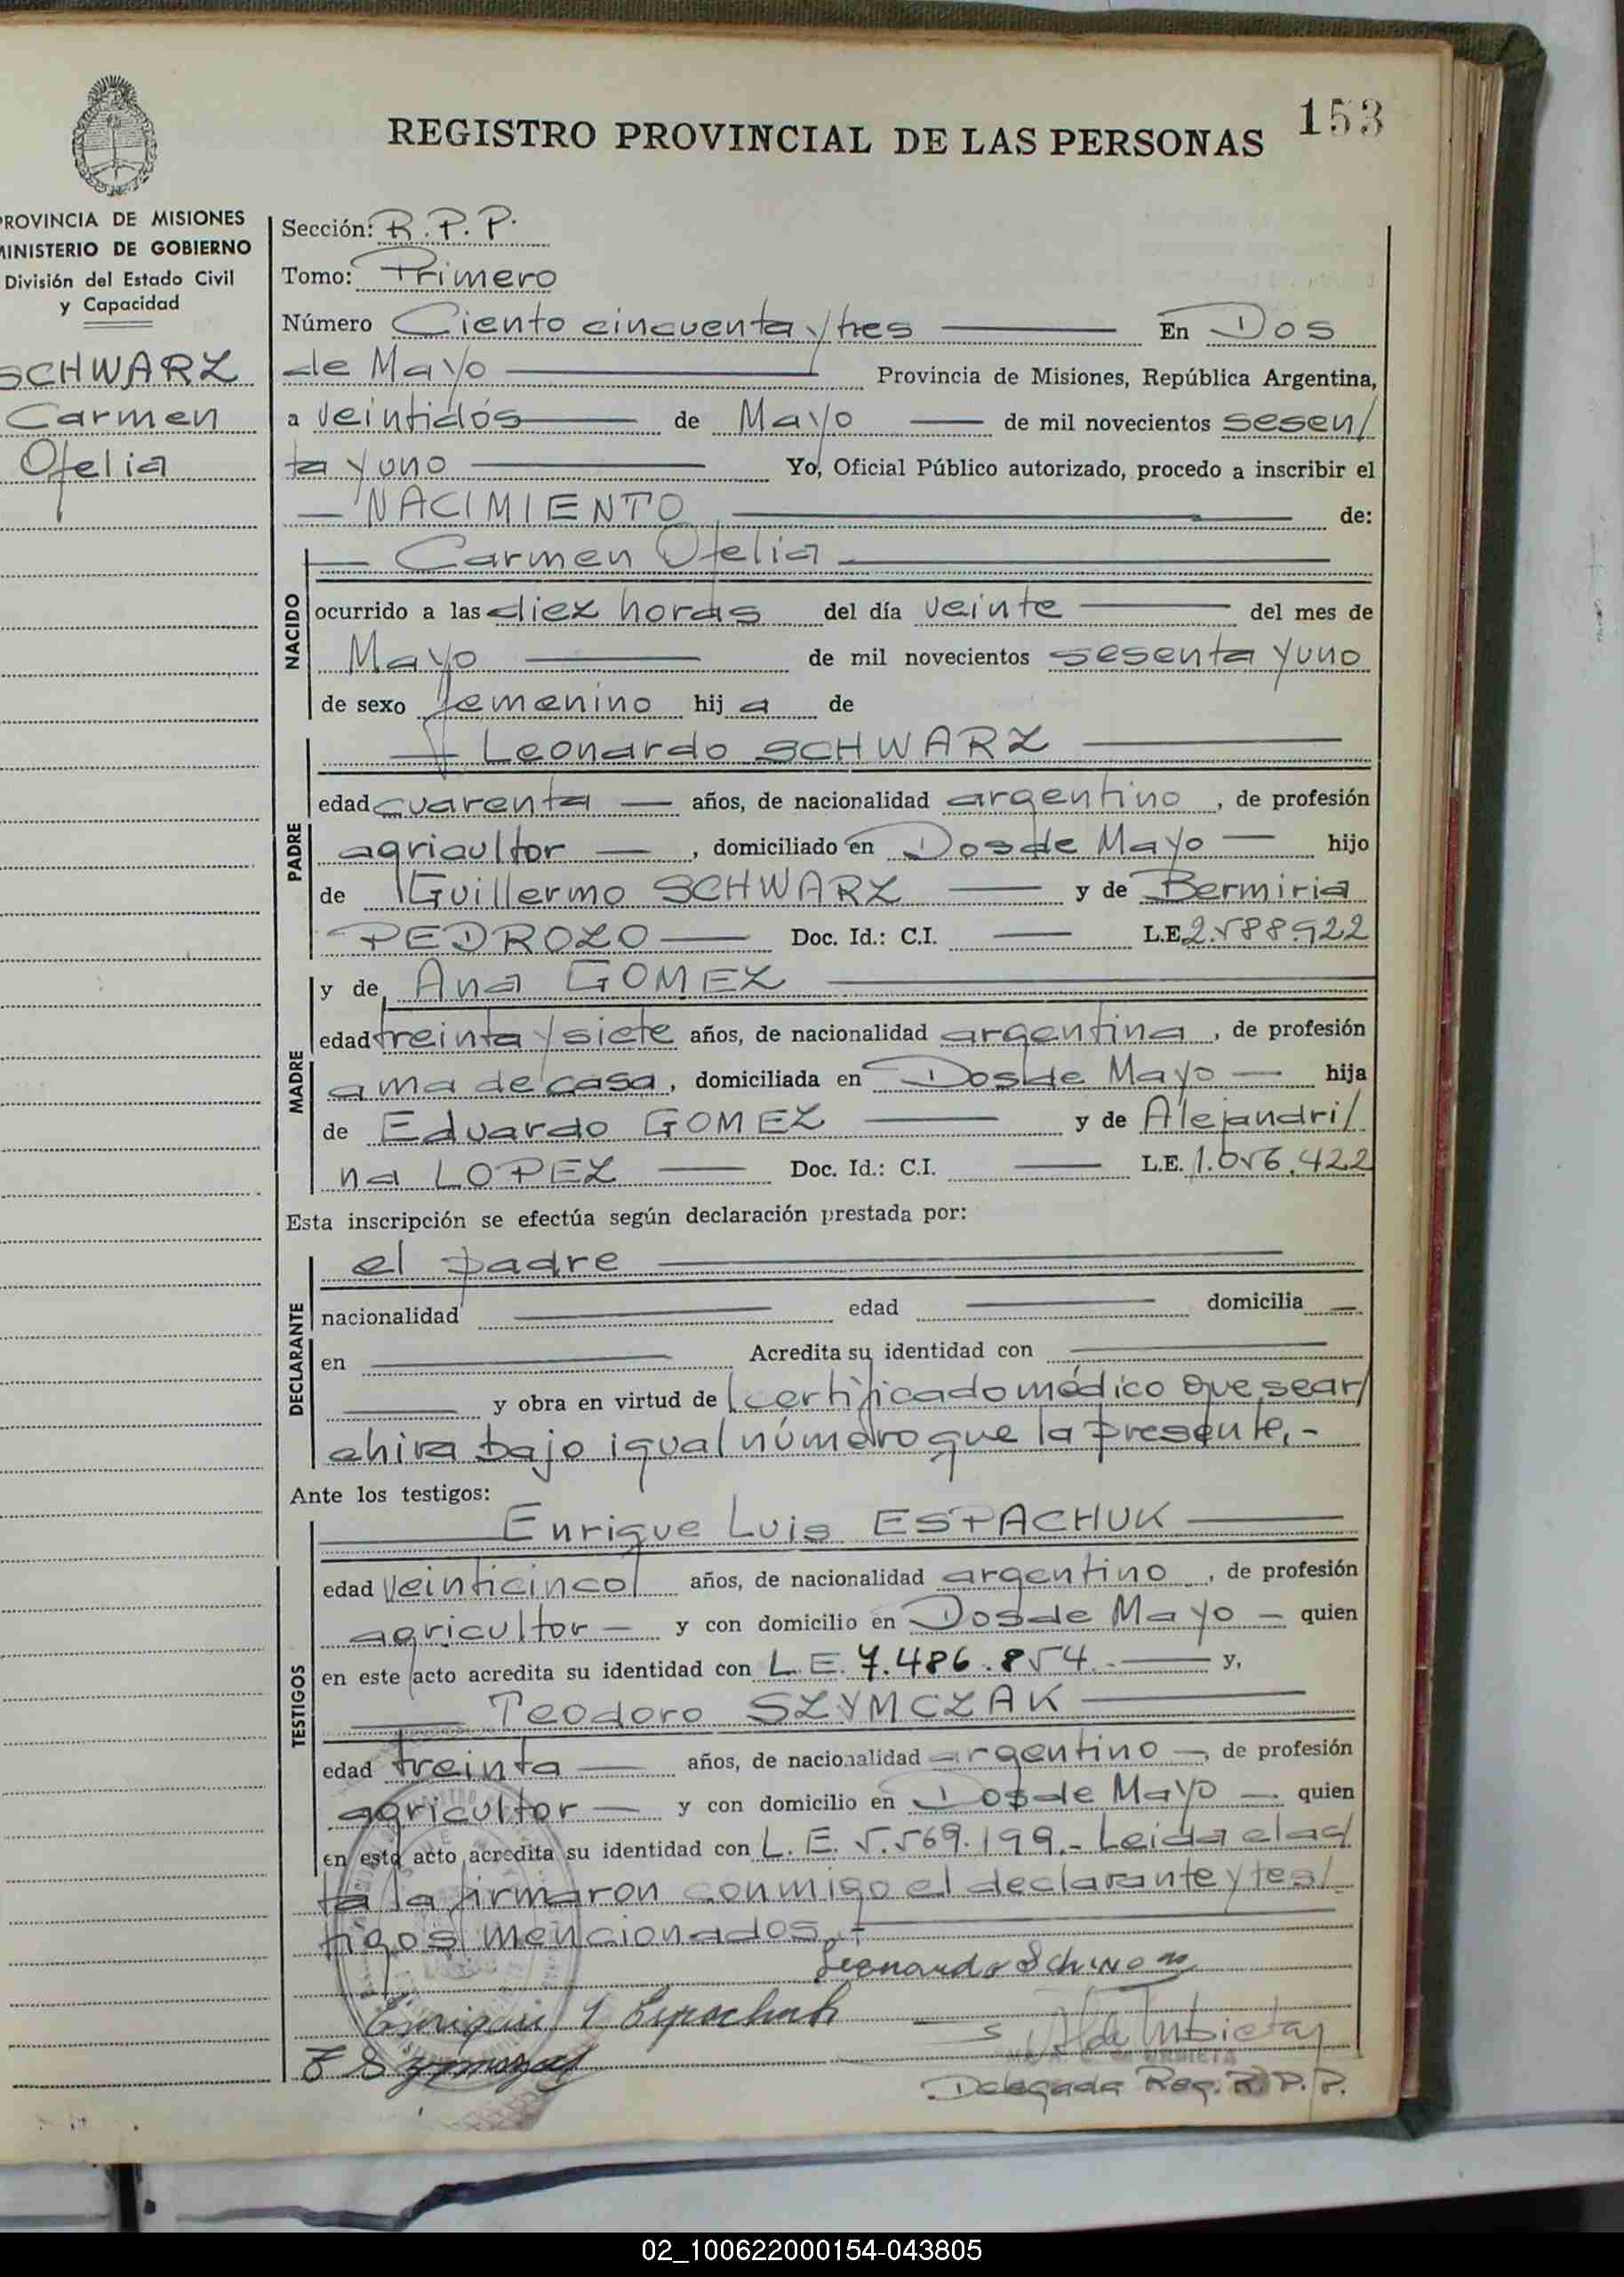 153
REGISTRO PROVINCIAL DE LAS PERSONAS
PROVINCIA DE MISIONES
MINISTERIO DE GOBIERNO
División del Estado Civil
y Capacidad
SCHWARZ
Carmen
Ofelia
Sección: R.P.P.
Tomo: Primero
Número Ciento cincuenta y tres En Dos
de Mayo Provincia de Misiones, República Argentina,
a veintidós de Mayo de mil novecientos sesen/
ta y uno Yo, Oficial Público autorizado, procedo a inscribir el
NACIMIENTO de:
NACIDO
Carmen Ofelia
ocurrido a las diez horas del día veinte del mes de
Mayo de mil novecientos sesenta y uno
de sexo femenino hij a de
PADRE
Leonardo SCHWARZ
edad cuarenta años, de nacionalidad argentino, de profesión
agricultor, domiciliado en Dos de Mayo hijo
de Guillermo SCHWARZ y de Bermiria
PEDROZO Doc. Id.: C.I. L.E. 2.588.922
MADRE
y de Ana GOMEZ
edad treinta y siete años, de nacionalidad argentina, de profesión
ama de casa, domiciliada en Dos de Mayo hija
de Eduardo GOMEZ y de Alejandri/
na LOPEZ Doc. Id.: C.I. L.E. 1.056.422
Esta inscripción se efectúa según declaración prestada por:
DECLARANTE
el padre
nacionalidad edad domicilia
en Acredita su identidad con
y obra en virtud de certificado médico que se ar/
chiva bajo igual número que la presente.-
Ante los testigos:
TESTIGOS
Enrique Luis ESPACHUK
edad veinticinco años, de nacionalidad argentino, de profesión
agricultor y con domicilio en Dos de Mayo quien
en este acto acredita su identidad con L.E. 7.486.854.- y,
Teodoro SZYMCZAK
edad treinta años, de nacionalidad argentino, de profesión
agricultor y con domicilio en Dos de Mayo quien
en este acto acredita su identidad con L.E. 5.569.199.- Leida el ac/
ta la firmaron conmigo el declarante y tes/
tigos mencionados.-
Leonardo
Enrique
Delegada Reg. R.P.P.
02_100622000154-043805